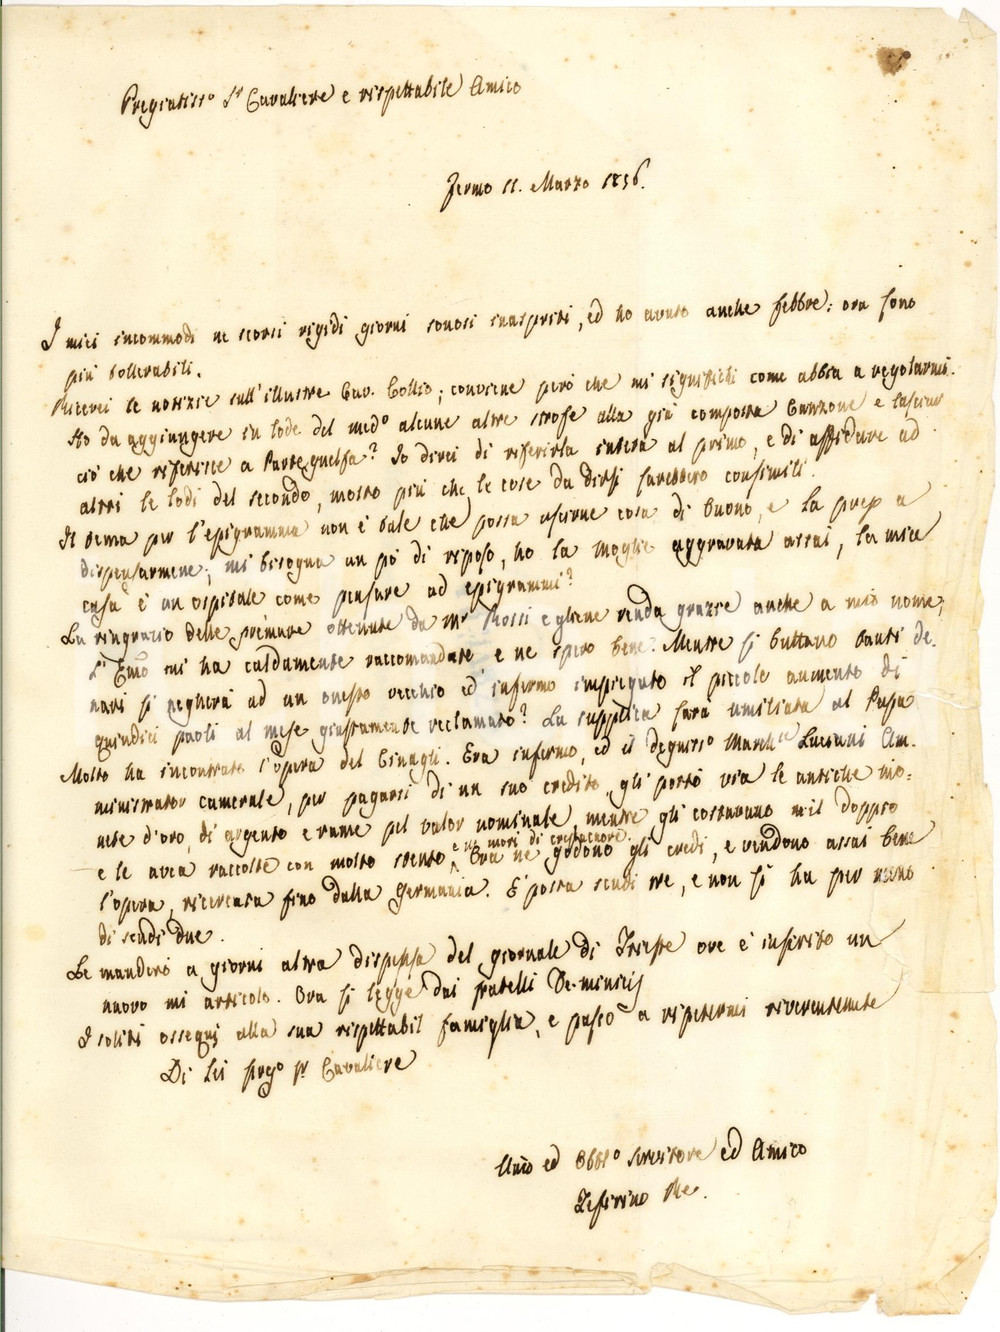 Pregiatiss.o Sr Cavaliere e rispettabile Amico
Fermo 11. Marzo 1856.
I miei incommodi ne scorsi rigidi giorni sonosi inaspriti, ed ho avuto anche febbre: ora sono
più tollerabili.
Ricevei le notizie sull'illustre Cav. Collio; conviene però che mi significhi come abbia a regolarmi.
Ho da aggiungere in lode del med.o alcune altre strofe alla già composta Canzone e lasciar
ciò che riferisce a Parteguelfa? Io direi di riferirla intera al primo, e di affidare ad
altri le lodi del secondo, molto più che le cose da dirsi sarebbero consimili.
Il tema per l'epigramma non è tale che possa uscirne cosa di buono, e la prego a
dispensarmene; mi bisogna un pò di riposo, ho la moglie aggravata assai, la mia
casa è un ospitale come pensare ad epigrammi?
La ringrazio delle premure ottenute da Mr Rossi e gliene renda grazie anche a mio nome;
l'Emo mi ha caldamente raccomandato e ne spero bene. Mentre si buttano tanti de-
nari si negherà ad un onesto vecchio ed infermo impiegato il piccolo aumento di
quindici paoli al mese giustamente reclamato? La supplica sarà umiliata al Papa
Molto ha incontrato l'opera del Cinagli. Era infermo, ed il Marchse Luciani Am-
ministrator camerale, per pagarsi di un suo credito, gli portò via le antiche mo-
nete d'oro, di argento e rame pel valor nominale, mentre gli costavano il doppio
e le avea raccolte con molto stento e ne morì di crepacuore. Ora ne godono gli eredi, e vendono assai bene
l'opera, ricercata fino dalla Germania. È posta scudi tre, e non si ha per meno
di scudi due.
Le manderò a giorni altra dispensa del giornale di Trieste ove è inserito un
nuovo mi articolo. Ora si legge dai fratelli De-Minicis
I soliti ossequj alla sua rispettabil famiglia, e passo a ripetermi riverentemente
Di Lei Preg.o Sr Cavaliere
Umo ed Obbl.o servitore ed Amico
Zefirino Re.